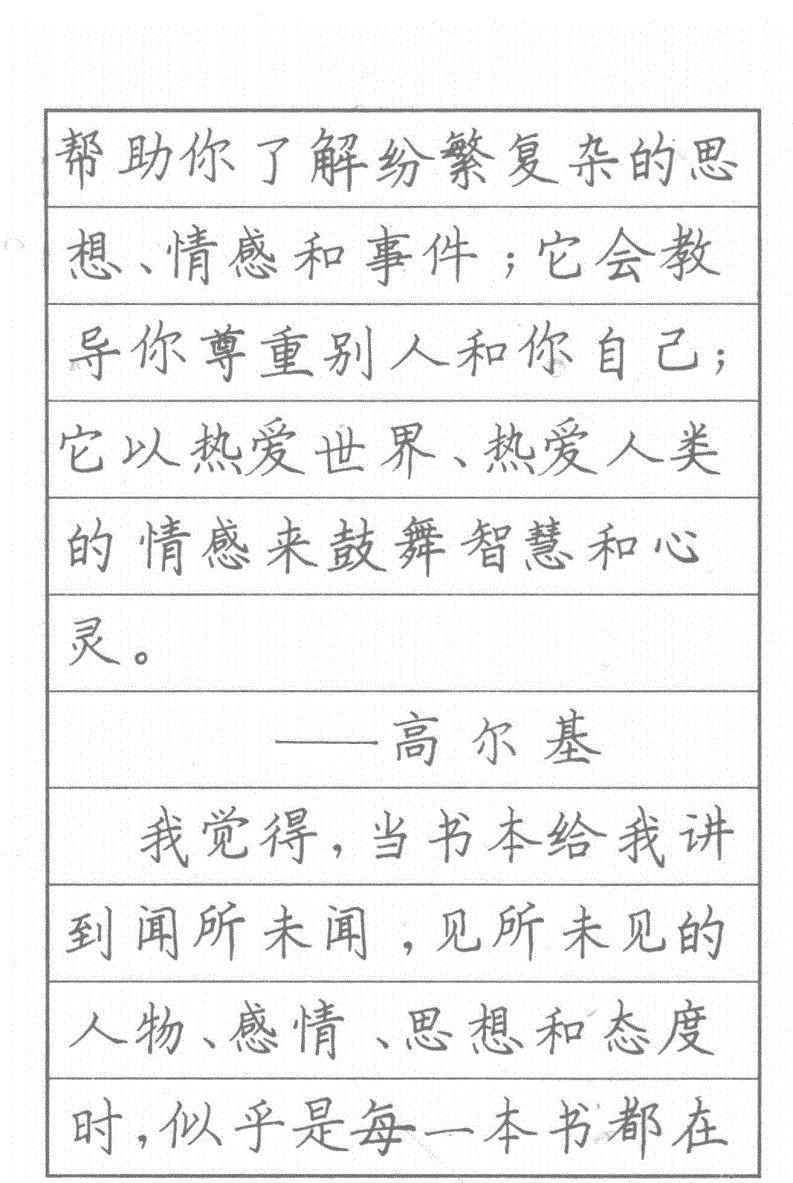 帮助你了解纷繁复杂的思
想、情感和事件；它会教
导你尊重别人和你自己；
它以热爱世界、热爱人类
的情感来鼓舞智慧和心
灵。
——高尔基
我觉得，当书本给我讲
到闻所未闻，见所未见的
人物、感情、思想和态度
时，似乎是每一本书都在